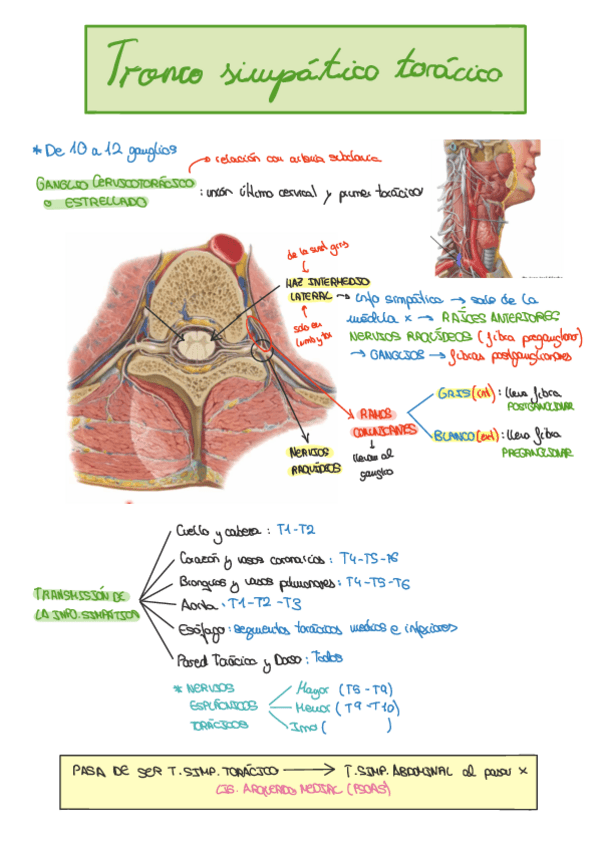 Tronco simpático torácico
* De 10 a 12 ganglios
→ relación con arteria subclavia
GANGLIO CERVICOTORÁCICO
o ESTRELLADO
: unión último cervical y primer torácico
de la sust gris
HAZ INTERMEDIO
LATERAL → info simpática → sale de la
médula x → RAÍCES ANTERIORES
solo en
lumb y tox
NERVIOS RAQUÍDEOS (fibra preganglionar)
→ GANGLIOS → fibras postganglionares
→ RAMOS
COMUNICANTES
↓
llevan al
ganglio
GRIS (int) : lleva fibra
POSTGANGLIONAR
BLANCO (ext) : lleva fibra
PREGANGLIONAR
NERVIOS
RAQUÍDEOS
TRANSMISIÓN DE
LA INFO. SIMPÁTICA
Cuello y cabeza : T1-T2
Corazón y vasos coronarios : T4-T5-T6
Bronquios y vasos pulmonares : T4-T5-T6
Aorta : T1-T2-T3
Esófago : segmentos torácicos medios e inferiores
Pared Torácica y Dorso : Todos
* NERVIOS
ESPLÁCNICOS
TORÁCICOS
Mayor (T6-T9)
Menor (T9-T10)
Imo ( )
PASA DE SER T.SIMP. TORÁCICO → T.SIMP. ABDOMINAL al pasar x
LIG. ARQUEADO MEDIAL (PSOAS)